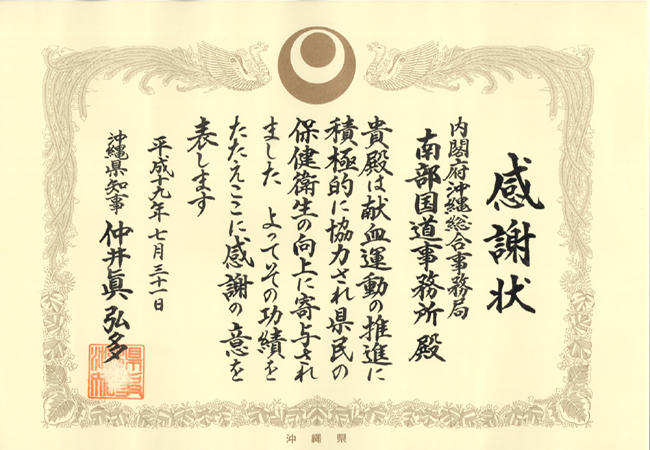 感謝状
内閣府沖縄総合事務局
南部国道事務所殿
貴殿は献血運動の推進に
積極的に協力され県民の
保健衛生の向上に寄与され
ました よってその功績を
たたえここに感謝の意を
表します
平成十九年七月三十一日
沖縄県知事 仲井眞弘多
沖縄県